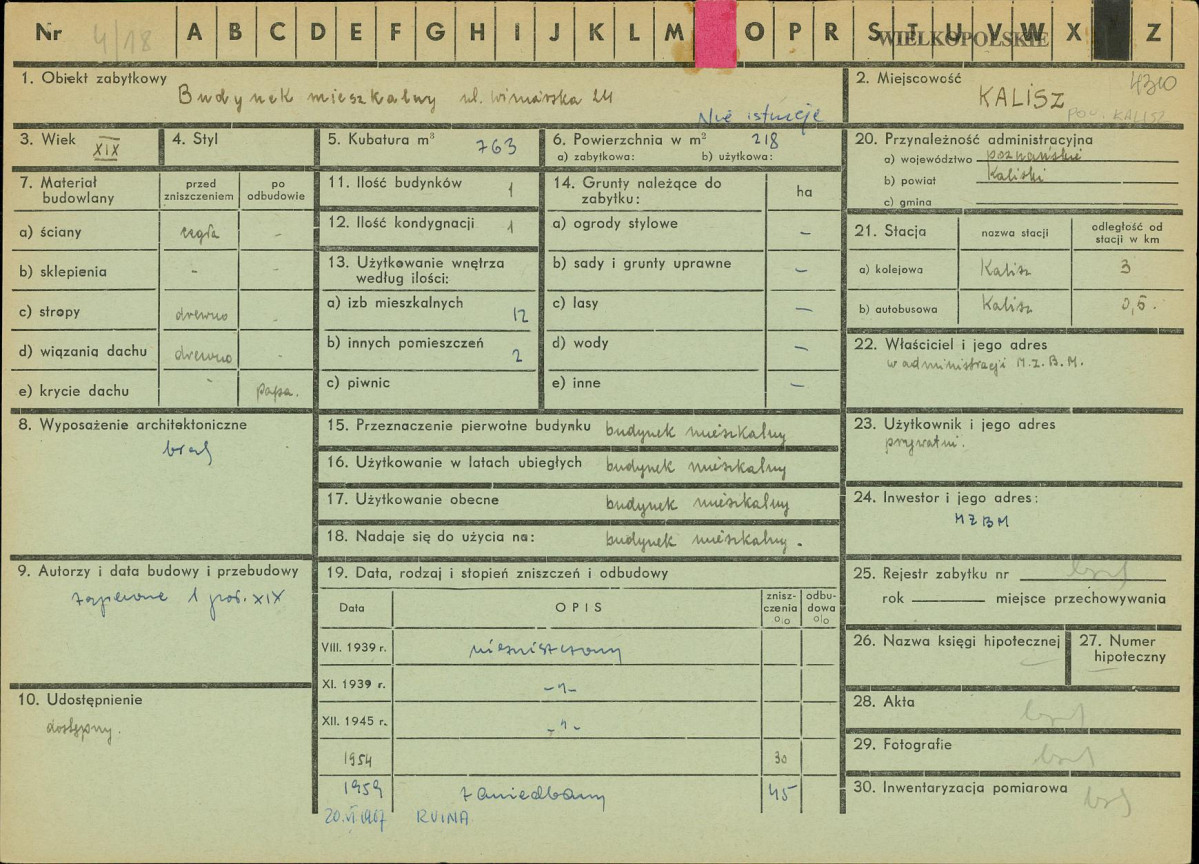 Nr 4/18 A B C D E F G H I J K L M O P R S T U V W X Z
WIELKOPOLSKIE
1. Obiekt zabytkowy
Budynek mieszkalny ul. Winiarska 24
Nie istnieje
2. Miejscowość
4310
KALISZ
POW. KALISZ
3. Wiek XIX
4. Styl
5. Kubatura m³ 763
6. Powierzchnia w m² 218
a) zabytkowa: b) użytkowa:
20. Przynależność administracyjna
a) województwo poznańskie
b) powiat Kaliski
c) gmina
7. Materiał budowlany
przed zniszczeniem
po odbudowie
a) ściany cegła -
b) sklepienia - -
c) stropy drewno -
d) wiązania dachu drewno -
e) krycie dachu - papa.
11. Ilość budynków 1
12. Ilość kondygnacji 1
13. Użytkowanie wnętrza
według ilości:
a) izb mieszkalnych 12
b) innych pomieszczeń 2
c) piwnic
14. Grunty należące do
zabytku: ha
a) ogrody stylowe –
b) sady i grunty uprawne –
c) lasy –
d) wody –
e) inne –
21. Stacja
nazwa stacji
odległość od
stacji w km
a) kolejowa Kalisz 3
b) autobusowa Kalisz 0,5.
22. Właściciel i jego adres
w administracji M.Z.B.M.
8. Wyposażenie architektoniczne
brak
15. Przeznaczenie pierwotne budynku budynek mieszkalny
16. Użytkowanie w latach ubiegłych budynek mieszkalny
17. Użytkowanie obecne budynek mieszkalny
18. Nadaje się do użycia na: budynek mieszkalny.
23. Użytkownik i jego adres
prywatni.
24. Inwestor i jego adres:
MZBM
9. Autorzy i data budowy i przebudowy
zapewne 1 poł. XIX
10. Udostępnienie
dostępny.
19. Data, rodzaj i stopień zniszczeń i odbudowy
Data
OPIS
znisz-
czenia
o|o
odbu-
dowa
o|o
VIII. 1939 r. niezniszczony
XI. 1939 r. -"-
XII. 1945 r. -"-
1954 30
1959 zaniedbany 45
20.VI.1967 RUINA
25. Rejestr zabytku nr brak
rok miejsce przechowywania
26. Nazwa księgi hipotecznej
27. Numer
hipoteczny
28. Akta brak
29. Fotografie brak
30. Inwentaryzacja pomiarowa brak